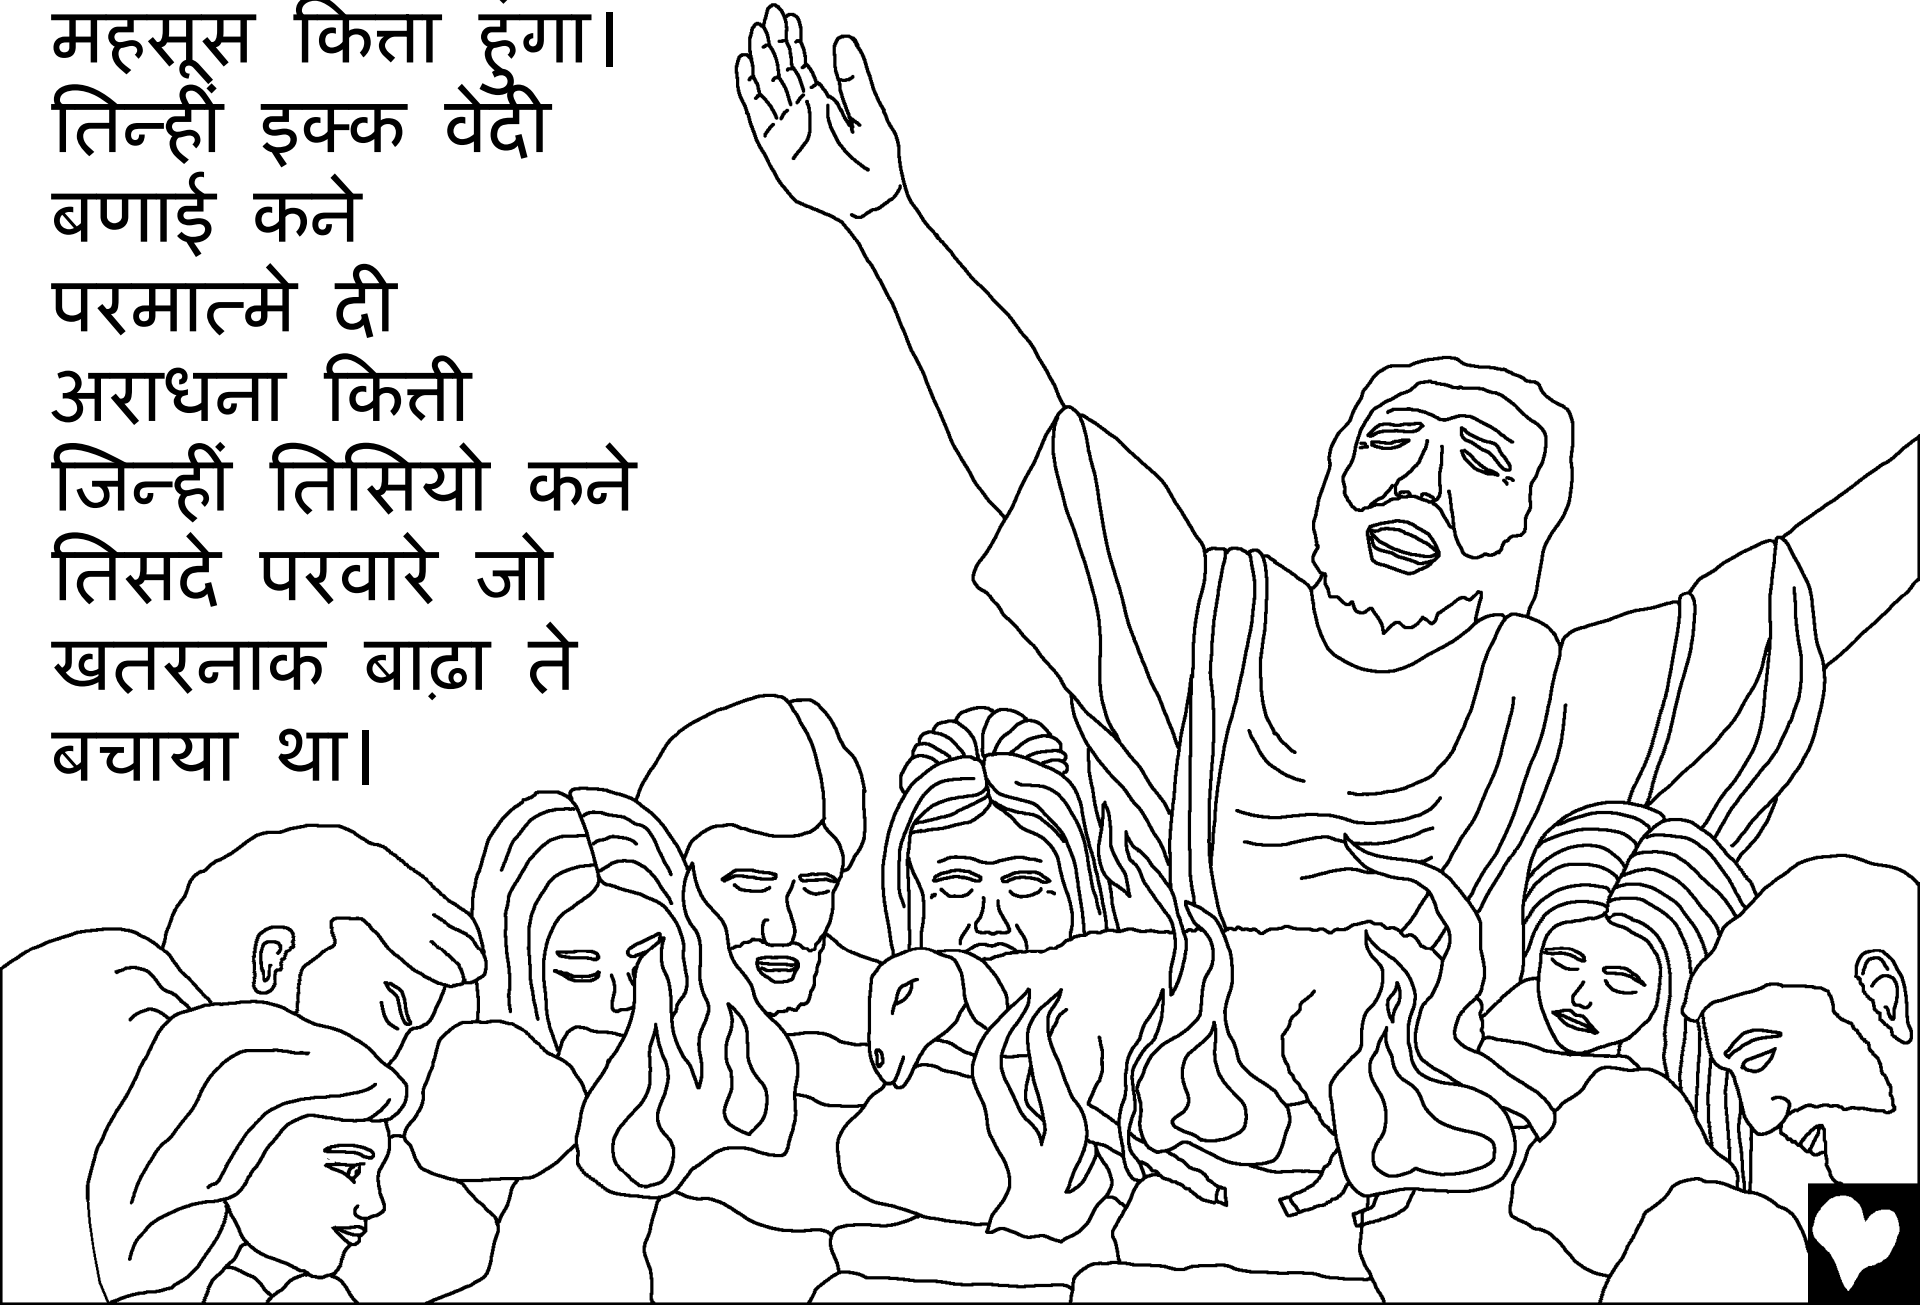 महसूस कित्ता हुंगा।
तिन्हीं इक्क वेदी
बणाई कने
परमात्मे दी
अराधना कित्ती
जिन्हीं तिसियो कने
तिसदे परवारे जो
खतरनाक बाढ़ा ते
बचाया था।